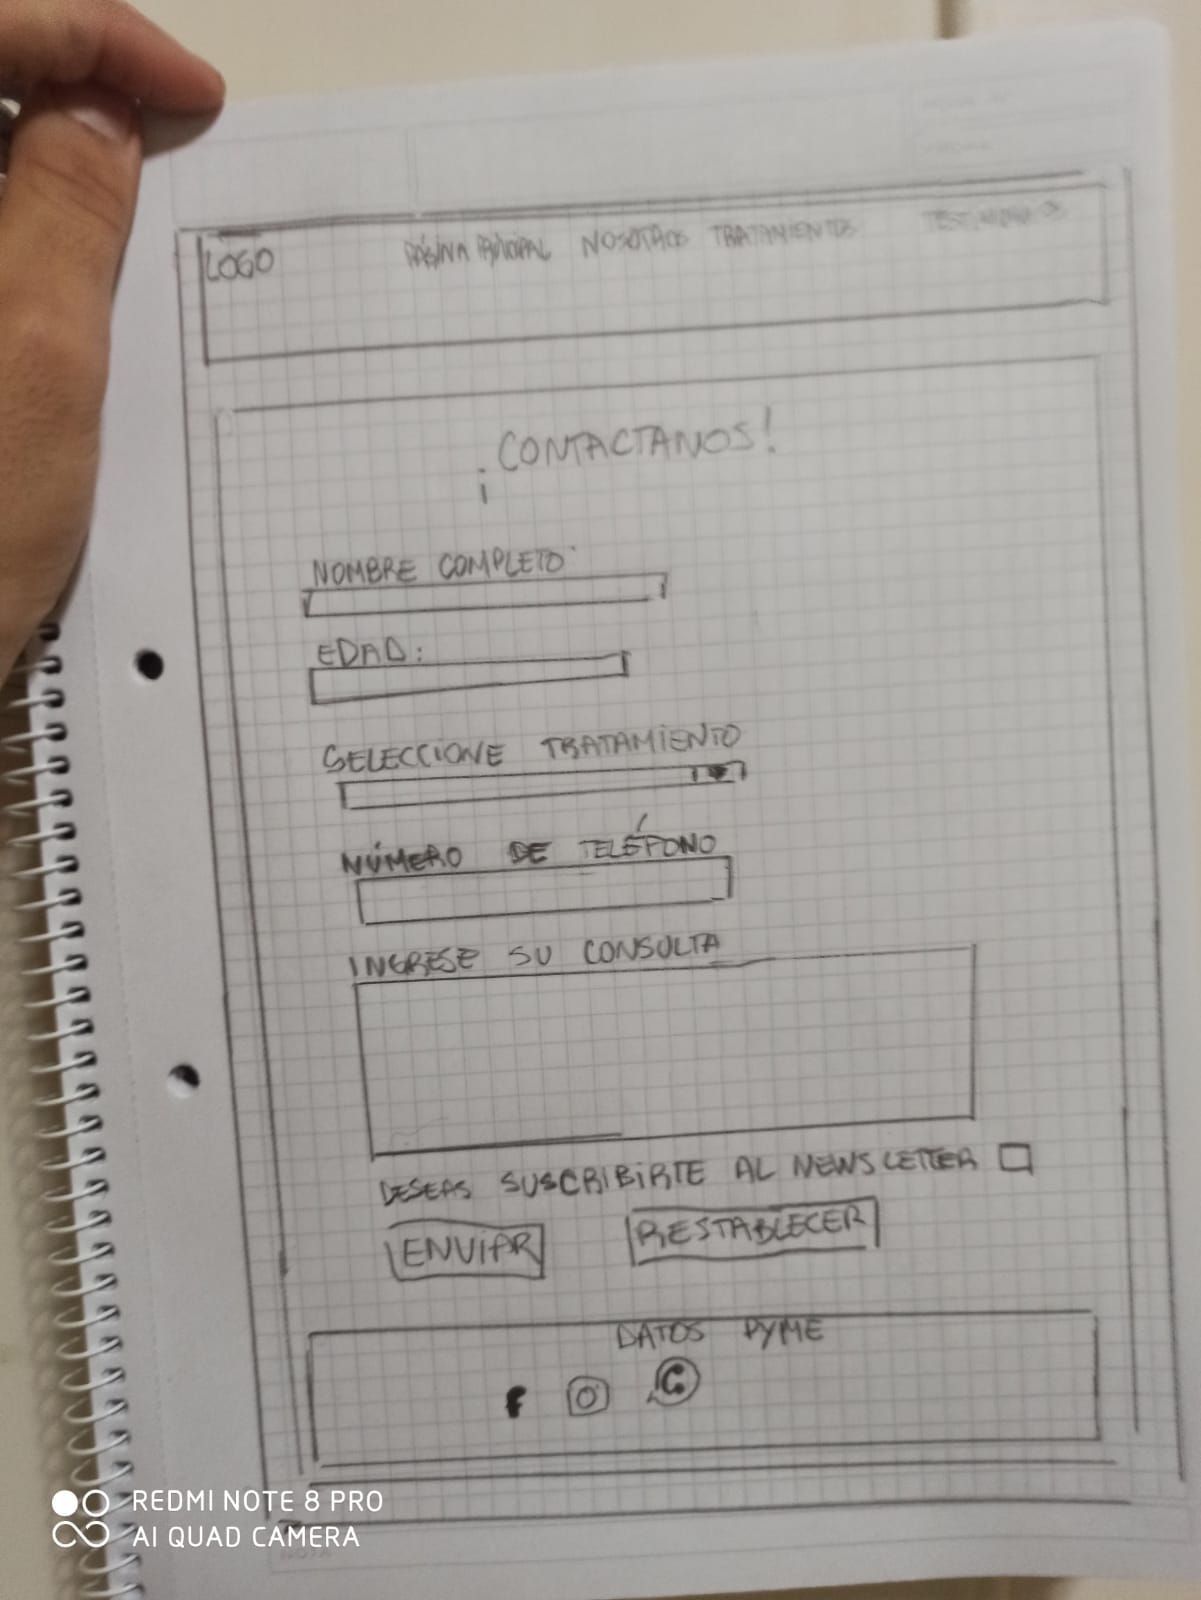 LOGO PÁGINA PRINCIPAL NOSOTROS TRATAMIENTOS TESTIMONIOS
¡CONTACTANOS!
NOMBRE COMPLETO:
EDAD:
SELECCIONE TRATAMIENTO
NÚMERO DE TELÉFONO
INGRESE SU CONSULTA
DESEAS SUSCRIBIRTE AL NEWSLETTER
ENVIAR RESTABLECER
DATOS PYME
f
REDMI NOTE 8 PRO
AI QUAD CAMERA